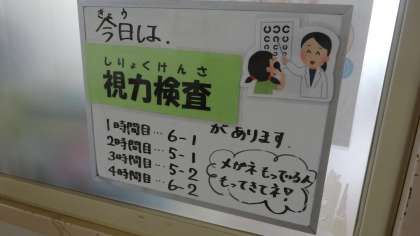 きょう
今日は、
しりょくけんさ
視力検査
1時間目…6-1
2時間目…5-1
3時間目…5-2
4時間目…6-2
があります。
メガネもっている人
もってきてネ!